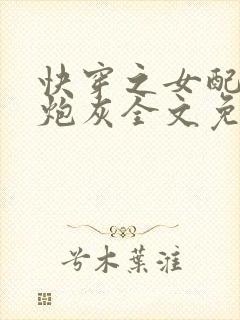 快穿之女配
炮灰全文免
兮木葉淮